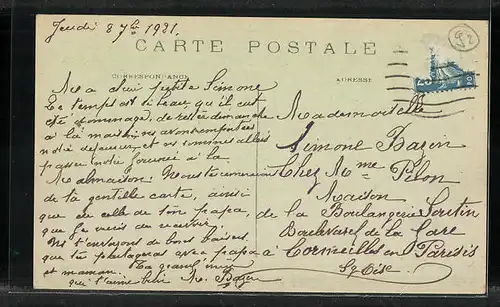 Jeudi 8 7bre 1921.
CARTE POSTALE
CORRESPONDANCE
ADRESSE
Ma chère petite Simone
Le temps est si beau, qu'il eut
été dommage, de rester dimanche
à la maison, avons emporté
notre déjeuner et nous sommes allés
passer notre journée à la
Malmaison. Nous te remercions
de ta gentille carte, ainsi
que de celle de ton papa,
que je viens de recevoir.
Ns t'envoyons de bons baisers
que tu partageras avec papa
et maman. Ta grand'mère
qui t'aime bien M. Bazin
Mademoiselle
Simone Bazin
Chez Mme Pilon
Maison
de la Boulangerie
Boulevard de la Gare
à Cormeilles en Parisis
S. & Oise